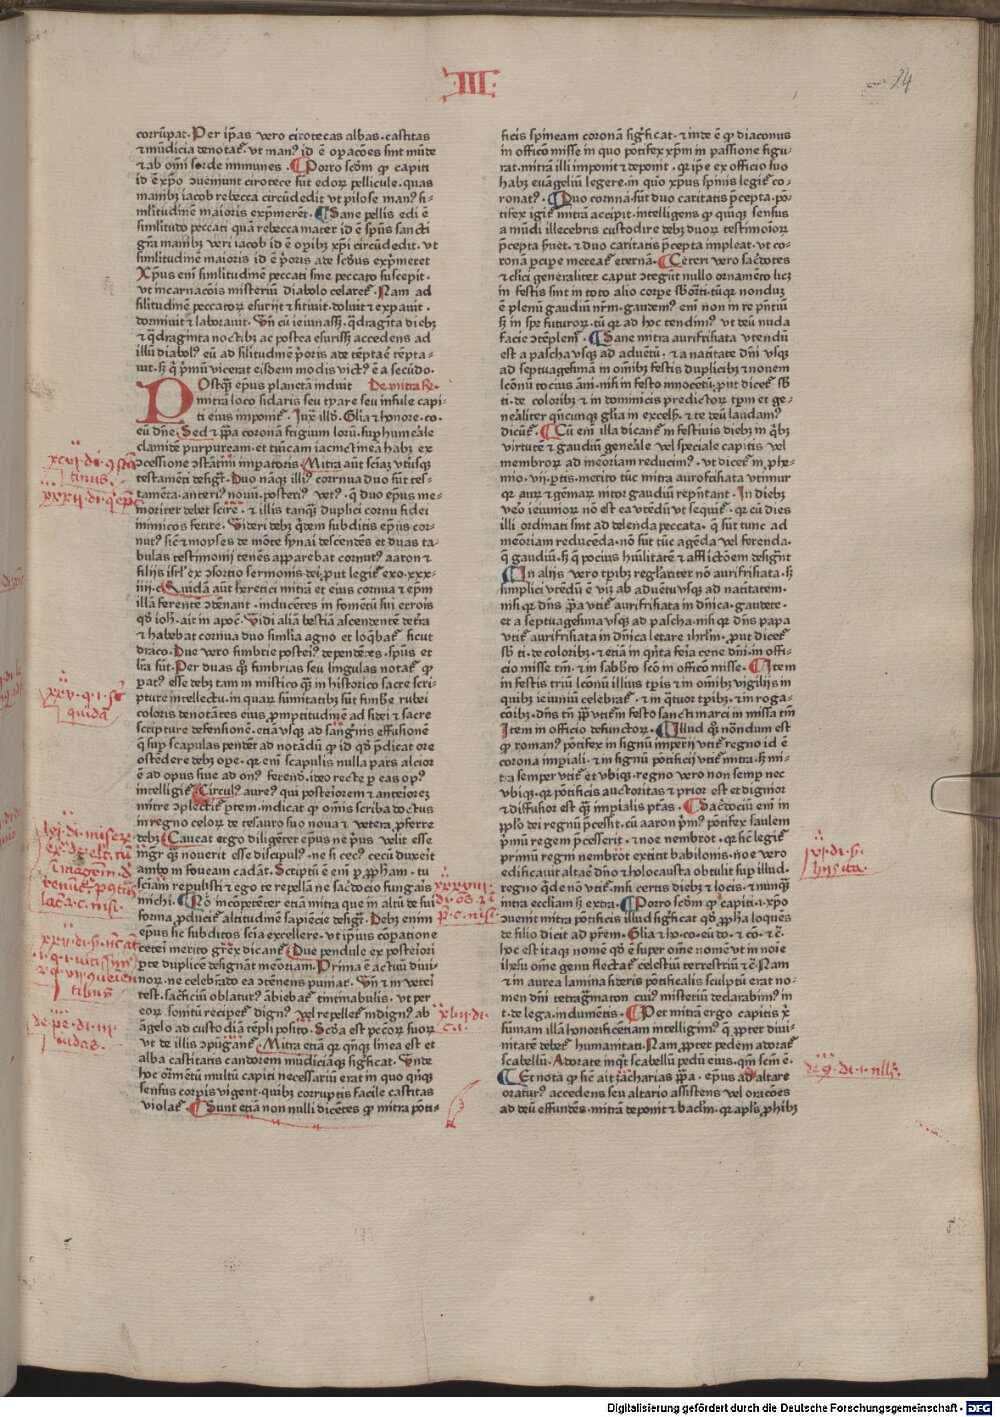 III
24
corrūpat. Per ip̄as vero cirotecas albas. castitas
⁊ mūdicia denotat᷑. vt man⁹ id ē opac̄oēs sint mūde
⁊ ab om̄i sorde immunes. Porro scd̄m qꝫ capiti
id ē xp̄o ↄueniunt cirotece sūt edor̨ pellicule. quas
manibꝫ iacob rebecca circūdedit vt pilose man⁹ si-
militudinē maioris exp̄merēt. Sane pellis edi ē
similitudo peccati quā rebecca mater id ē sp̄us sancti
gr̄a manibꝫ veri iacob id ē op̄ibꝫ xp̄i circūdedit. vt
similitudinē maioris id ē p̄oris ade scd̄us exp̄meret
Xp̄us em̄ similitudinē peccati sine peccato suscepit.
vt incarnac̄ois misteriū diabolo celaret᷑. Nam ad
silitudinē peccator̨ esuriit ⁊ sitiuit. doluit ⁊ expauit.
dormiuit ⁊ laborauit. Vn̄ cū ieiunass̨ q̄dragīta diebꝫ
⁊ q̄draginta noctibꝫ ac postea esuriss̨ accedens ad
illū diabol⁹ eū ad silitudinē p̄oris ade tēptatē tēpta-
uit. sꝫ q̄ p̄mū vicerat eisdem modis vict⁹ ē a secūdo.
POstqꝫ ep̄us planetā induit De mitra
mitrā loco sidaris seu tyare seu infule capi-
ti eius imponit᷑. Iux̄ illd̄. Gl̄ia ⁊ honore. co.
eū dn̄e. Sed ⁊ p̄pa coronā frigium lorū. suphumeāle
clamidē purpuream. et tunicam iacinctinēa habꝫ ex
ↄcessione ↄstātini impatoris. Mitra aūt sciaꝫ vtiusqꝫ
testamēti desigt᷑. Duo nāqꝫ illi⁹ cornua duo sūt tes-
tamēta. anteri⁹ nouū. posteri⁹ vet⁹. q̄ duo ep̄us me-
moriter debet scire. ⁊ illis tanqꝫ duplici cornu fidei
inimicos ferire. Videri debꝫ q̄dem subditis ep̄us cor-
nut⁹ sic̄ ⁊ moyses de mōte synai descendēs et duas ta-
bulas testimonij tenēs apparebat cornut⁹ aaron ⁊
filiis isrl̄ ex ↄsortio sermonis dei. put legit᷑ exo. xxx-
iiii. Quidā aūt heretici mitrā et eius cornua ⁊ ep̄m
illā ferentē ↄtēnant. inducētes in fomētū sui erroris
qd̄ ioh̄. ait in apoc̄. Vidi aliā bestiā ascendentē de t̄ra
⁊ habebat cornua duo similia agno et loq̄bat᷑ sicut
draco. Due vero fimbrie posteri⁹ depēdētes. sp̄us et
lr̄a sūt. Per duas q̄ꝫ fimbrias seu lingulas notat᷑ qꝫ
pat⁹ esse debꝫ tam in mistico qꝫ in historico sacre scri-
pture intellectu. in quar̨ sūmitatibꝫ sūt fimbe rubei
coloris denotātes eius p̄mptitudinē ad fidei ⁊ sacre
scripture defensionē. etiā vsqꝫ ad sanginis effusionē
q̄ sup scapulas pendēt ad notādū qꝫ id qd̄ p̄dicat ore
ostēdere debꝫ ope. qꝫ em̄ scapulis nulla pars alcior
ē ad opus siue ad on⁹ ferend. ideo recte p eas op⁹
intelligit᷑. Circul⁹ aure⁹ qui posteriorem ⁊ anteiorez
mitre ↄplectit᷑ ptem. indicat qꝫ om̄is scriba doctus
in regno celor̨ de tesauro suo noua ⁊ vetera p̄ferre
debꝫ. Caueat ergo diligēter ep̄us ne p̄us velit esse
m̄gr qꝫ nouerit esse discipul⁹. ne si cec⁹ cecū duxeīt
ambo in foueam cadāt. Scriptū ē em̄ p p̄pham. tu
sciam repulisti ⁊ ego te repellā ne sac̄docio fungais
michi. Nō incōpetēter etiā mitra que in altū de sui
forma p̄ducit᷑ altitudinē sapiēcie desigt᷑. Debꝫ enim
ep̄us sic subditos sc̄ia excellere. vt ipsius cōpatione
ceteī merito grex dicant᷑. Due pendule ex posteriori
pte duplicē desigānt mēoriam. Prima ē actiū diui-
nor̨. ne celebrādo ea ↄtēnens puniat᷑. Vn̄ ⁊ in veteī
test. sac̄ficiū oblatur⁹ ābiebat᷑ tintinabulis. vt per
eor̨ sonitū recipet᷑ dign⁹ vel repellet᷑ indign⁹ ab
āgelo ad custodiā tēpli posito. Scd̄a est pccōr̨ suor̨
vt de illis ↄpūgaīnt᷑. Mitra etiā qꝛ q̄nqꝫ linea est et
alba castitatis candorem mudiciāqꝫ sigficat. Vnde
hoc orn̄mētū multū capiti necessariū erat in quo q̄nqꝫ
sensus corpis vigent. quibꝫ corruptis facile castitas
violat᷑. Sunt etiā non nulli dicētes qꝫ mitra pōti-
ficis spineam coronā sig̓ficat. ⁊ inde ē qꝫ diaconus
in officō misse in quo pōtifex xp̄m in passione figu-
rat. mitrā illi imponit ⁊ deponit. qꝛ ip̄e ex officio suo
habꝫ euāgeliū legere. in quo xp̄us spinis legit᷑ co-
ronat⁹. Duo cornua sūt duo caritatis p̄cepta. pō-
tifex igit᷑ mitrā accipit. intelligens qꝫ quiqꝫ sensus
a mūdi illecebris custodire debꝫ duor̨ testimoīor̨
p̄cepta p̄uet. ⁊ duo caritatis p̄cepta impleat. vt co-
ronā pcipe mereat᷑ eternā. Ceteri vero sac̄dotes
⁊ cl̄ici generaliter caput ↄtegūt nullo ornamēto licꝫ
in festis sint in toto alio corpe sb̄orti. tūqꝛ nonduꝫ
ē plenū gaudiū nr̄m. gaudem⁹ em̄ non in re pn̄tiū
sꝫ in spe futuror̨. tū qꝛ ad hoc tendim⁹ vt deū nuda
facie ↄtēplem⁹. Sane mitra aurifrisiata vtendū
est a pascha vsqꝫ ad aduētū. ⁊ a natītate dn̄i vsqꝫ
ad septuagesimā in om̄ibꝫ festis duplicibꝫ ⁊ nouem
lc̄onū tocius am̄. nisi in festo innocētū. put dicet᷑ sb̄
ti. de coloribꝫ ⁊ in dominicis predictor̨ tpm et ge-
neāliter qn̄cunqꝫ gl̄ia in excels̄. ⁊ te deū laudam⁹
dicūt᷑. Cū em̄ illa dicant᷑ in festiuis diebꝫ in q̄bꝫ
virtutē ⁊ gaudiū geneāle vel speciale capitis vel
membror̨ ad mēoriam reducim⁹. vt dicet᷑ in p̄he-
mio. vij. ptis. merito tūc mitra aurofrisiata vtimur
qꝛ aur̨ ⁊ gēmar̨ nitor gaudiū repn̄tant. In diebꝫ
veō ieiunior̨ nō est ea vtēdū vt sequit᷑. qꝛ cū dies
illi ordinati sint ad delenda peccata. q̄ sūt tunc ad
mēoriam reducēda. nō sūt tūc agēda vel ferenda.
q̄ gaudiū. sꝫ q̄ pocius hūilitatē ⁊ afflictōem desigt̄
In alijs vero tpibꝫ reglāriter nō aurifrisiata. sꝫ
simplici vtēdū ē viꝫ ab aduētu vsqꝫ ad natītatem.
nisi qꝛ dn̄s p̄pa vtit᷑ aurifrisiata in dn̄ica. gaudete.
et a septuagesima vsqꝫ ad pascha. nisi qꝛ dn̄s papa
vtit᷑ aurifrisiata in dn̄ica letare ihrl̄m. prout dicet᷑
sb̄ ti. de coloribꝫ. ⁊ etiā in q̄nta feīa cene dn̄i. in offi-
cio misse tm̄. ⁊ in sabb̄to scō in officō misse. Item
in festis triū lc̄onū illius tpis ⁊ in om̄ibꝫ vigilijs in
quibꝫ ieiuniū celebrat᷑. ⁊ in q̄tuor tpibꝫ. ⁊ in roga-
cōibꝫ. dn̄s tn̄ p̄p vtit᷑ in festo sancti marci in missa tm̄
Item in officio defunctor̨. Illud q̄ꝫ nōndum est
qꝫ roman⁹ pōtifex in signū imperii vtit᷑ regno id ē
corona impiali. ⁊ in signū pōtificii vtit᷑ mitra. sꝫ mi-
tra semper vtit᷑ et vbiqꝫ. regno vero non semp nec
vbiqꝫ. qꝛ pōtificis auctoritas ⁊ prior est et dignior
⁊ diffusior est qꝫ impialis ptās. Sac̄dociū em̄ in
pplo dei regnū p̄cessit. cū aaron p̄m⁹ pōtifex saulem
p̄mū regem p̄cesserit. ⁊ noe nembrot. qꝛ sic̄ legit᷑
primū regni nembrot extitit babilonis. noe vero
edificauit altāe dn̄o ⁊ holocausta obtulit sup illud.
regno q̄de nō vtit᷑ nisi certis diebꝫ ⁊ locis. ⁊ nunqꝫ
intra eccliam sꝫ extra. Porro scd̄m qꝫ capiti. i. xp̄o
ↄuenit mitra pōtificis illud sig̓ficat qd̄ p̄pha loques
de filio dicit ad pr̄em. Gl̄ia ⁊ ho. co. eū do. ⁊ cō. ⁊ c̄.
hoc est itaqꝫ nomē qd̄ ē super om̄e nomē vt in noīe
ihesu om̄e genu flectat᷑ celestiū terrestriū ⁊ c̄. Nam
⁊ in aurea lamina sideris pōtificalis sculptū erat no-
men dn̄i tetragm̄aton cui⁹ misteriū declarabim⁹ in
t. de lega. indumētis. Per mitrā ergo capitis xp̄i
sūmam illā honorificētiam intelligim⁹ q̄ pptet diui-
nitatē debet᷑ humanitati. Nam pptet pedem adorat᷑
scabellū. Adorate inqt̄ scabellū pedū eius. qm̄ scm̄ ē.
Et nota qꝫ sic̄ ait zacharias p̄pa. ep̄us ad altare
oratur⁹ accedens seu altario assistens vel oracōes
ad deū effundēs. mitrā deponit ⁊ baclm̄. qꝛ apl̄s p̄hibꝫ
xcvi. di. ↄstā
tinus.
xxxii. di. q̄ ep̄s
xxv. q. i. s̄t
quidā
lac̄a. c. nisi.
tibus
de pe. di. iii.
iudas.
xxxviii
di. oēs.
p̄. c. nisi.
xliii. di.
c. i.
vi. di. §.
hijs ita
Digitalisierung gefördert durch die Deutsche Forschungsgemeinschaft - DFG